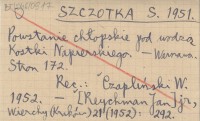 SZCZOTKA S. 1951.
Powstanie chłopskie pod wodzą
Kostki Napierskiego. – Warszawa
Stron 172.
Rec.: Czapliński W.
1952. – [Reychman Jan] jr,
Wierchy (Kraków) 21 (1952): 292.